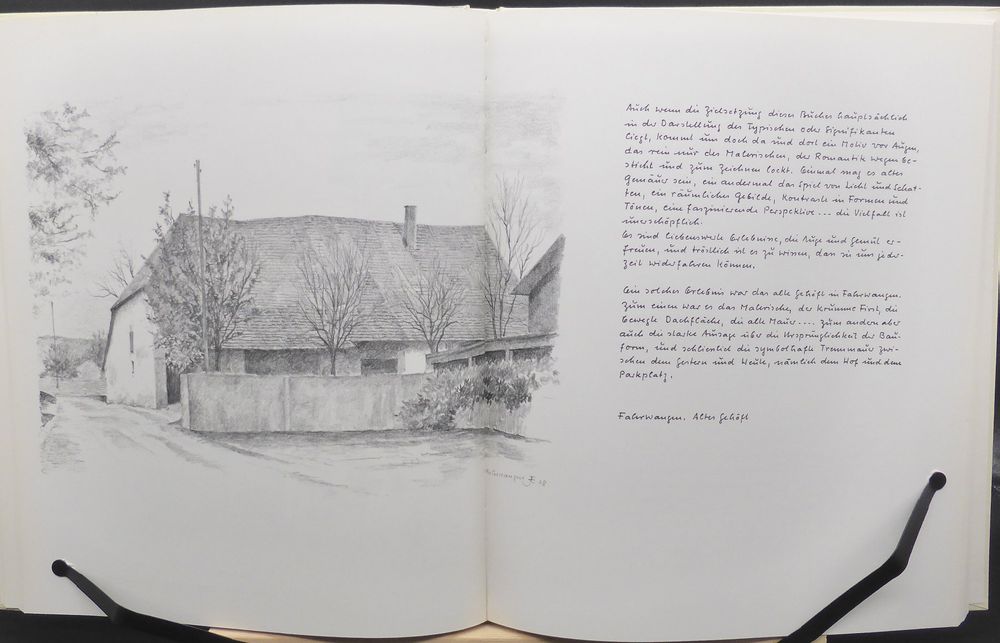 Auch wenn die Zielsetzung dieses Buches hauptsächlich
in der Darstellung des Typischen oder Signifikanten
liegt, kommt uns doch da und dort ein Motiv vor Augen,
das rein nur des Malerischen, der Romantik wegen be-
sticht und zum Zeichnen lockt. Einmal mag es altes
Gemäuer sein, ein andermal das Spiel von Licht und Schat-
ten, ein räumliches Gebilde, Kontraste in Formen und
Tönen, eine faszinierende Perspektive... die Vielfalt ist
unerschöpflich.
Es sind liebenswerte Erlebnisse, die Auge und Gemüt er-
freuen, und tröstlich ist es zu wissen, dass sie uns jeder-
zeit widerfahren können.
Ein solches Erlebnis war das alte Gehöft in Fahrwangen.
Zum einen war es das Malerische, der krumme First, die
bewegte Dachfläche, die alte Mauer.... zum andern aber
auch die starke Aussage über die Ursprünglichkeit der Bau-
form, und schliesslich die symbolhafte Trennmauer zwi-
schen dem Gestern und Heute, nämlich dem Hof und dem
Parkplatz.
Fahrwangen. Altes Gehöft
Fahrwangen